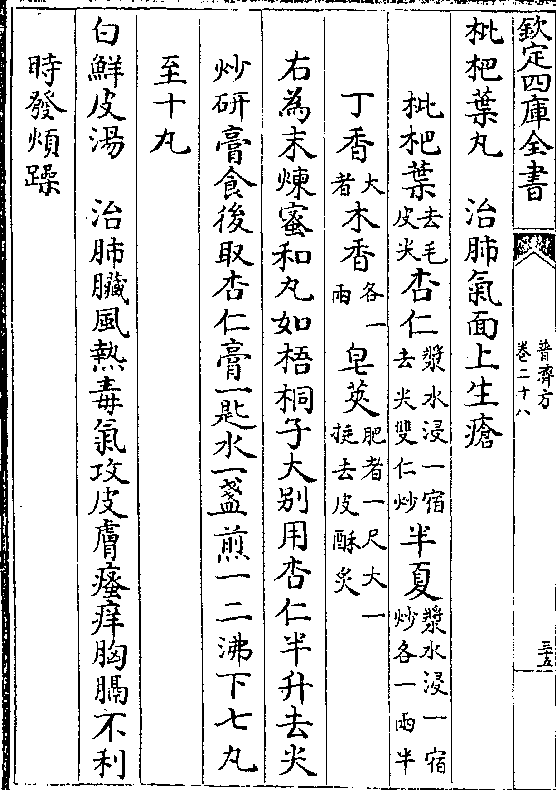 欽定四庫全書
普濟方
卷二十八
三五
枇杷葉丸　治肺氣面上生瘡
枇杷葉去毛皮尖杏仁漿水浸一宿去尖雙仁炒半夏漿水浸一宿炒各一兩半
丁香大者木香各一兩皂莢肥者一尺大一挺去皮酥炙
右為末煉蜜和丸如梧桐子大别用杏仁半升去尖
炒研膏食後取杏仁膏一匙水一盞煎一二沸下七丸
至十丸
白鮮皮湯　治肺臟風熱毒氣攻皮膚瘙痒胸膈不利
時發煩躁